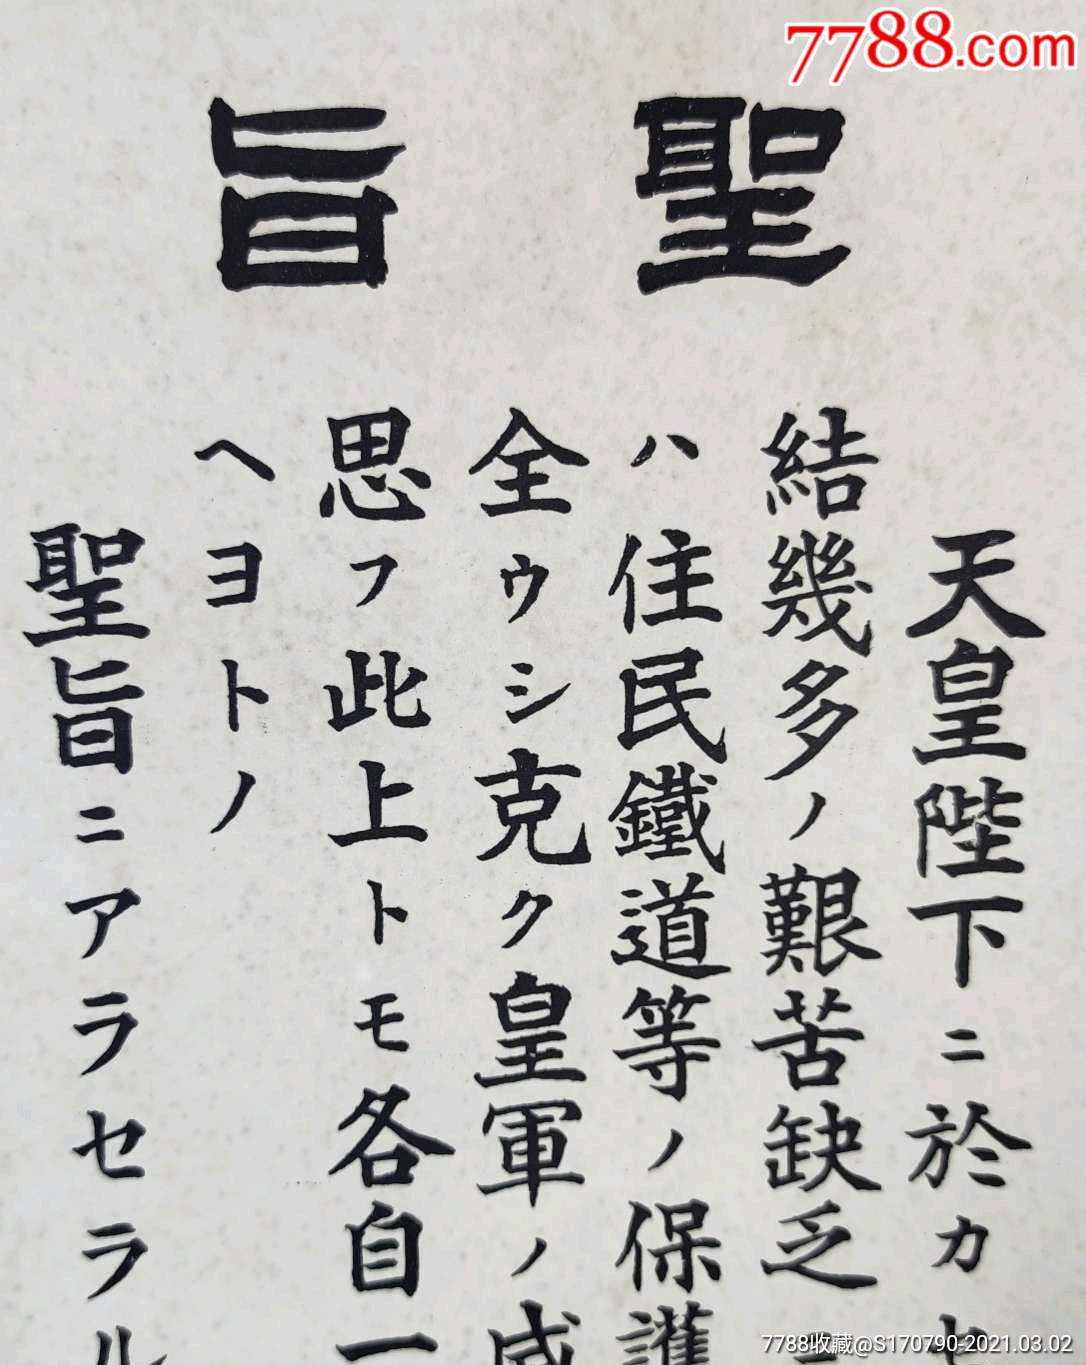 7788.com
聖旨
天皇陛下ニ於カセ
結幾多ノ艱苦缺乏
ハ住民鐵道等ノ保護
全ウシ克ク皇軍ノ威
思フ此上トモ各自一
ヘヨトノ
聖旨ニアラセラル
7788收藏@S170790-2021.03.02